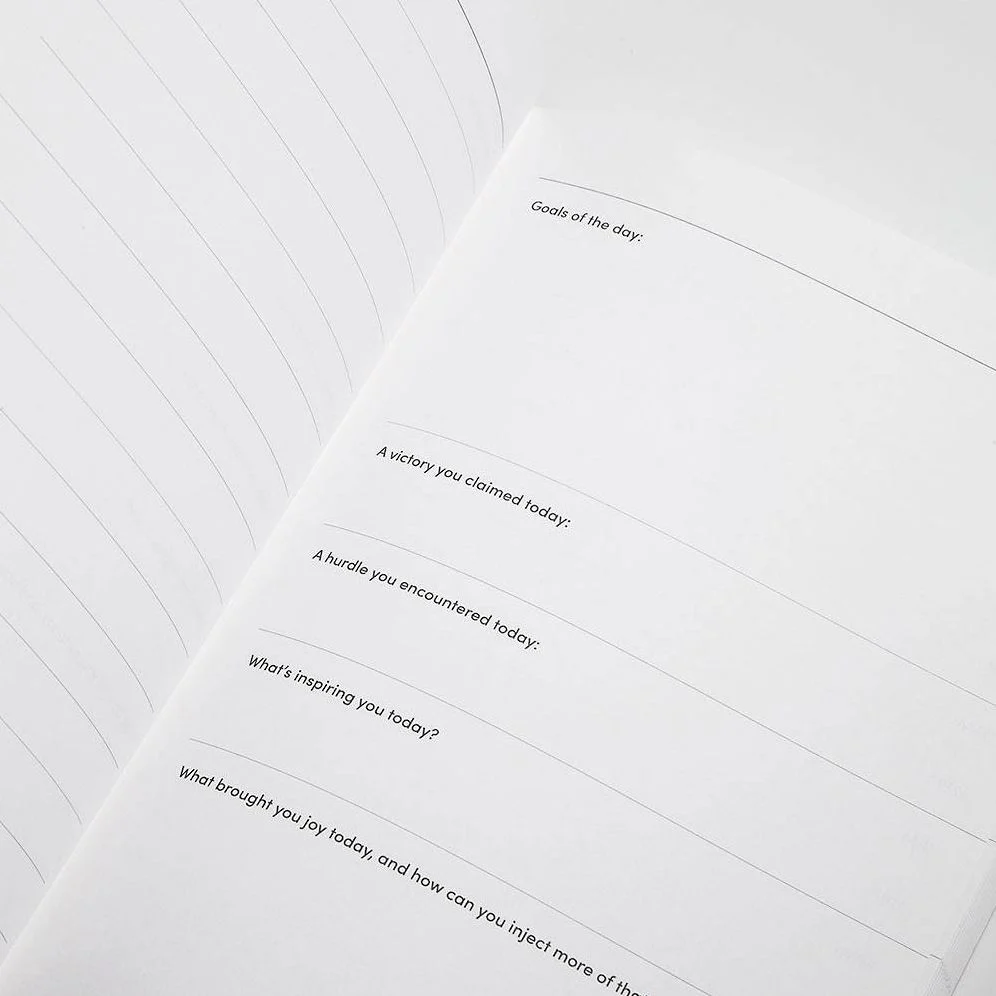 Goals of the day:
A victory you claimed today:
A hurdle you encountered today:
What's inspiring you today?
What brought you joy today, and how can you inject more of